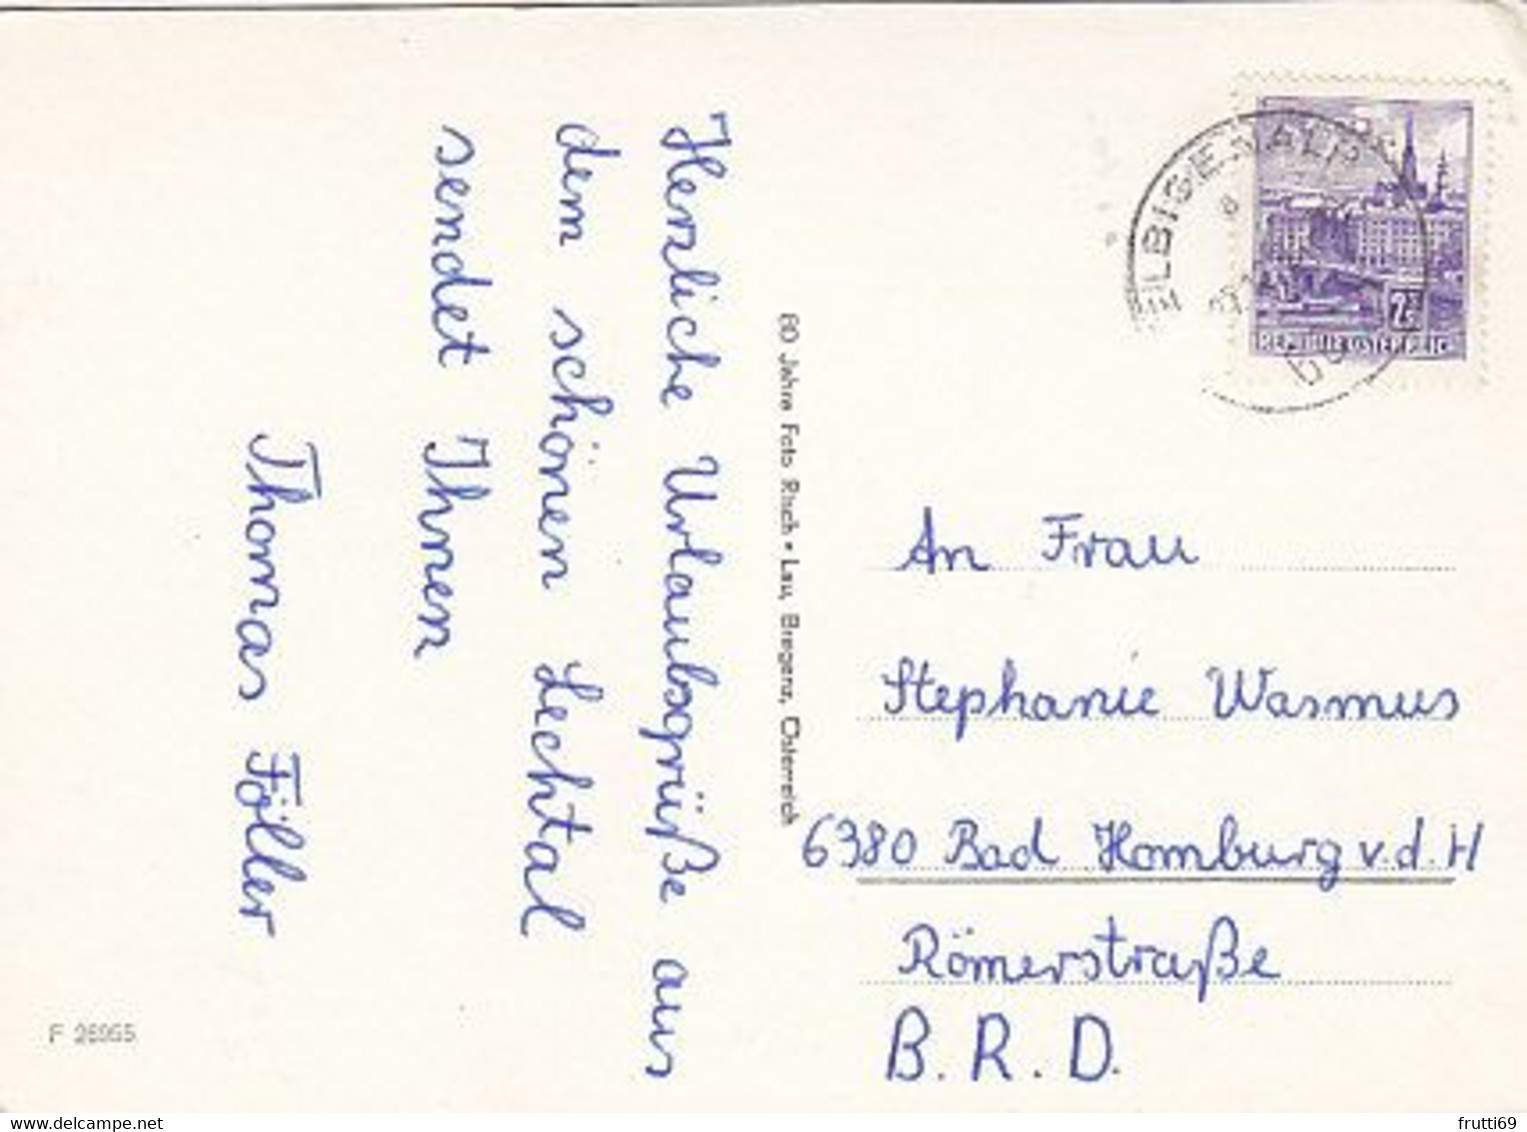 Herzliche Urlaubsgrüße aus
dem schönen Lechtal
sendet Ihnen
Thomas Föller
60 Jahre Foto Risch • Lau, Bregenz, Österreich
F 26955
ELBIGENALP
2
REPUBLIK ÖSTERREICH
An Frau
Stephanie Wasmus
6380 Bad Homburg v.d.H
Römerstraße
B.R.D.
frutti69